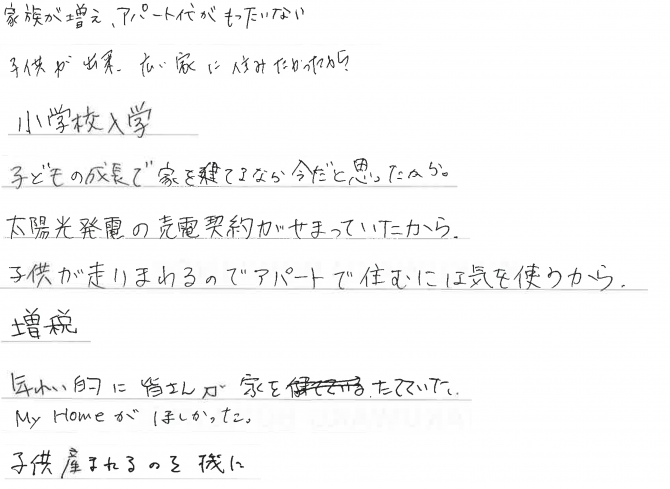 家族が増え、アパート代がもったいない
子供が出来、広い家に住みたかったから
小学校入学
子どもの成長で家を建てるなら今だと思ったから。
太陽光発電の売電契約がせまっていたから.
子供が走りまわるのでアパートで住むには気を使うから.
増税
年れい的に皆さんが家をたてていた.
My Homeがほしかった。
子供産まれるのを機に